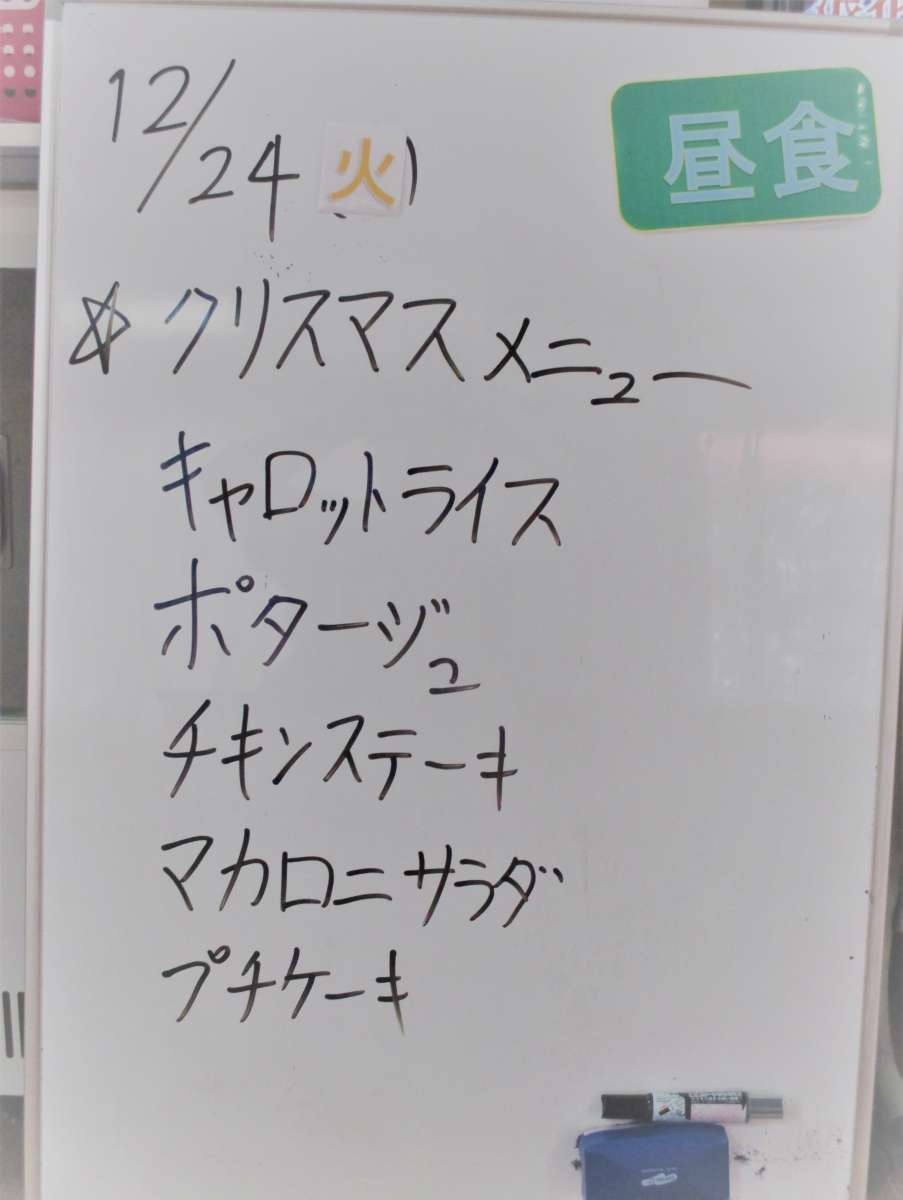 12/24(火)
昼食
☆クリスマスメニュー
キャロットライス
ポタージュ
チキンステーキ
マカロニサラダ
プチケーキ